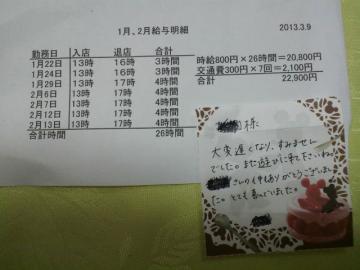 1月、2月給与明細
2013.3.9
勤務日 入店 退店 合計
1月22日 13時 16時 3時間
1月24日 13時 16時 3時間
1月29日 13時 17時 4時間
2月6日 13時 17時 4時間
2月7日 13時 17時 4時間
2月12日 13時 17時 4時間
2月13日 13時 17時 4時間
合計時間 26時間
時給800円×26時間=20,800円
交通費300円×7回=2,100円
22,900円
様
大変遅くなり、すみません
でした。また遊びに来て下さいね。
さんの
ありがとうございまし
た。とても喜んでいました。